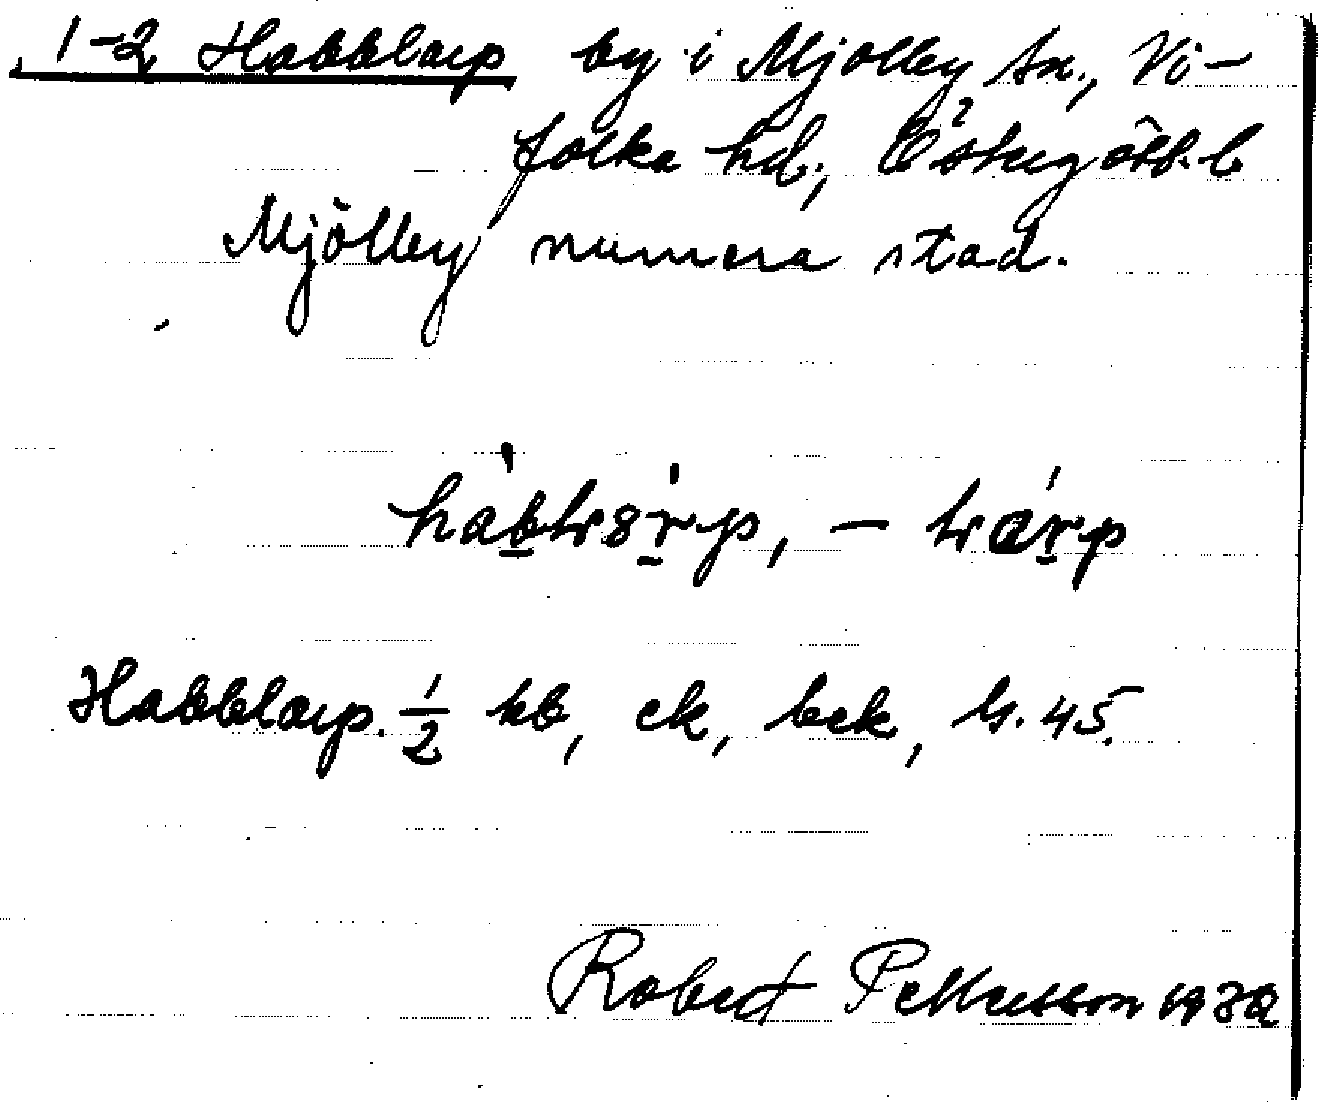 1-2 Habblarp by i Mjölby sn., Vi-
folka hd., Östergötl. l
Mjölby numera stad.
Habblarp. 1/2 kb, ek, bek, h. 45.
Robert Pettersson 1932